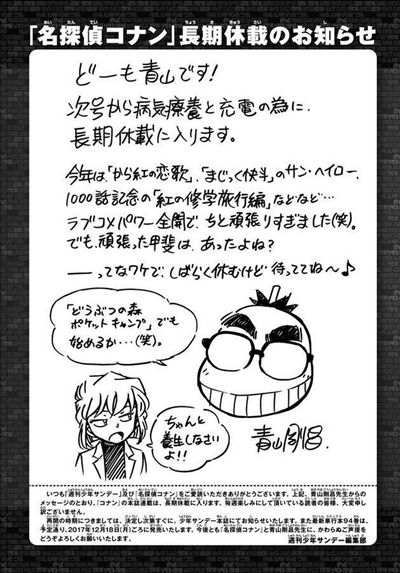 「名探偵コナン」長期休載のお知らせ
どーも青山です!
次号から病気療養と充電の為に、
長期休載に入ります。
今年は「から紅の恋歌」、「まじっく快斗」のサン・ヘイロー、
1000話記念の「紅の修学旅行編」などなど…
ラブコメパワー全開で、ちと頑張りすぎました(笑)。
でも、頑張った甲斐は、あったよね?
――ってなワケで、しばらく休むけど待っててね〜♪
「どうぶつの森
ポケットキャンプ」でも
始めるか…(笑)。
ちゃんと
養生しなさい
よ!!
青山剛昌
いつも「週刊少年サンデー」及び「名探偵コナン」をご愛読いただきありがとうございます。上記、青山剛昌先生からの
メッセージのとおり、「コナン」の本誌連載は、長期休載に入ります。毎週楽しみにして頂いている読者の皆様、大変申し
訳ございません。
再開の時期につきましては、決定し次第すぐに、少年サンデー本誌にてお知らせいたします。また最新単行本94巻は、
予定通り、2017年12月18日(月)ごろに発売いたします。今後とも「名探偵コナン」と青山剛昌先生に、かわらぬご声援を
どうぞよろしくお願いいたします。
週刊少年サンデー編集部